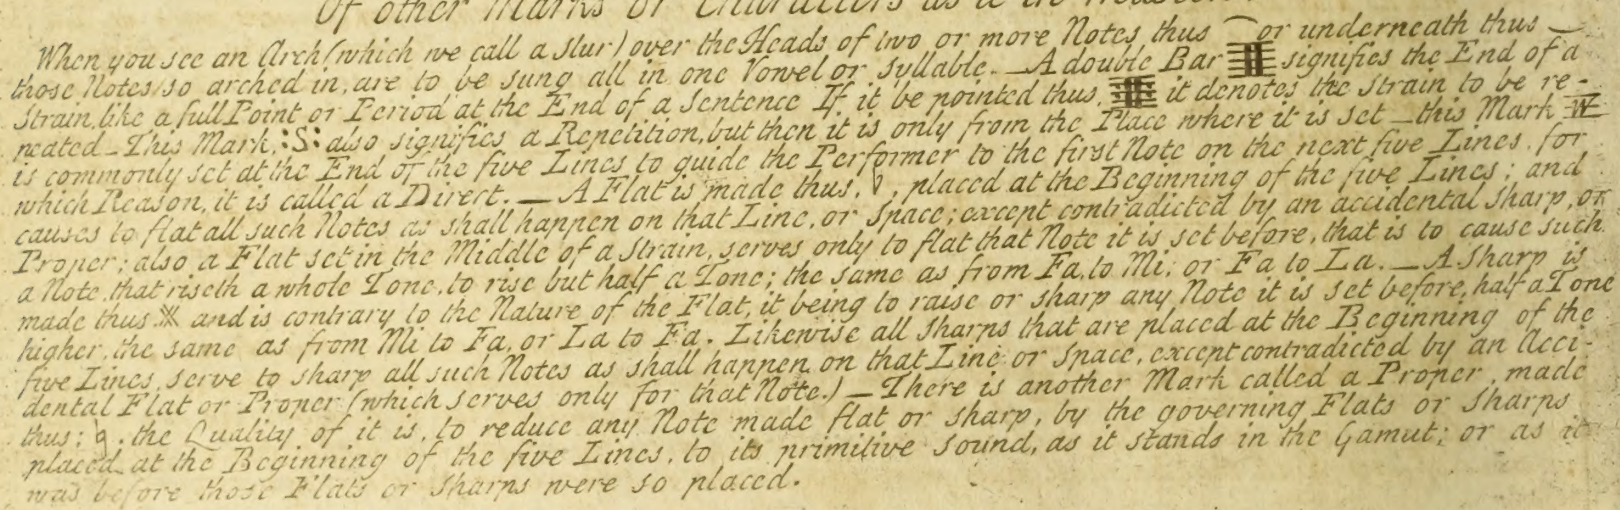 Of other Marks or Characters as
When you see an Arch (which we call a Slur) over the Heads of two or more Notes thus ⁀ or underneath thus ‿
those Notes so arched in, are to be sung all in one Vowel or Syllable. — A double Bar signifies the End of a
Strain, like a full Point or Period at the End of a Sentence If it be pointed thus, it denotes the Strain to be re-
peated — This Mark, :S: also signifies a Repetition, but then it is only from the Place where it is set — this Mark
is commonly set at the End of the five Lines to guide the Performer to the first Note on the next five Lines, for
which Reason, it is called a Direct. — A Flat is made thus, ♭, placed at the Beginning of the five Lines; and
causes to flat all such Notes as shall happen on that Line, or Space; except contradicted by an accidental Sharp, or
Proper; also a Flat set in the Middle of a Strain, serves only to flat that Note it is set before, that is to cause such
a Note, that riseth a whole Tone, to rise but half a Tone; the same as from Fa, to Mi; or Fa to La. — A Sharp is
made thus ⋕ and is contrary to the Nature of the Flat, it being to raise or sharp any Note it is set before, half a Tone
higher, the same as from Mi to Fa, or La to Fa. Likewise all Sharps that are placed at the Beginning of the
five Lines, serve to sharp all such Notes as shall happen on that Line or Space, except contradicted by an Acci-
dental Flat or Proper (which serves only for that Note.) — There is another Mark called a Proper, made
thus; ♮. the Quality of it is, to reduce any Note made flat or sharp, by the governing Flats or Sharps
placed at the Beginning of the five Lines, to its primitive Sound, as it stands in the Gamut; or as it
was before those Flats or Sharps were so placed.